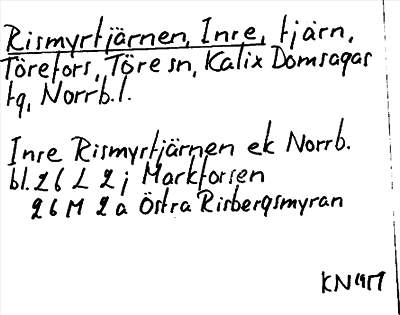 Rismyrtjärnen, Inre, tjärn,
Törefors, Töre sn, Kalix Domsagas
tg, Norrb. l.
Inre Rismyrtjärnen ek Norrb.
bl. 26 L 2 j Markforsen
26 M 2 a Östra Risbergsmyran